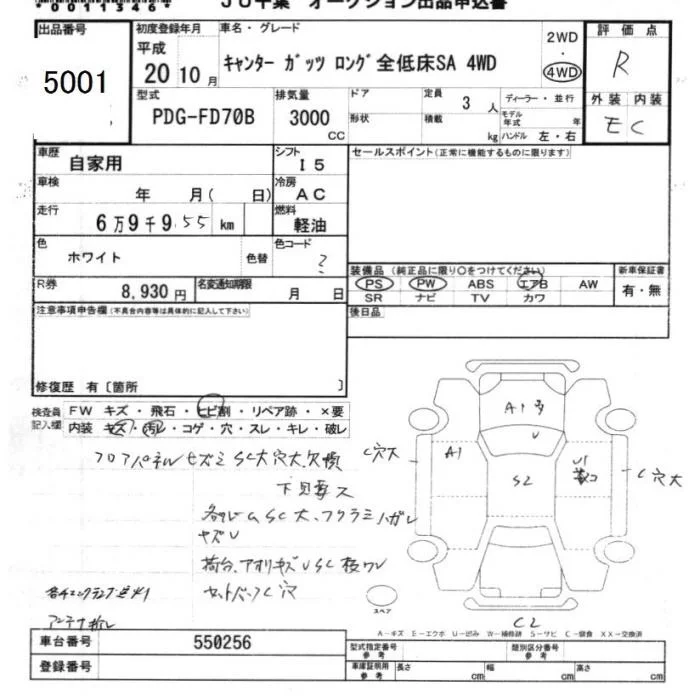 *00111346*
JU千葉 オークション出品申込書
出品番号 5001
初度登録年月 平成 20 10月
車名・グレード キャンター ガッツ ロング 全低床SA 4WD
2WD ・ 4WD
評価点 R
型式 PDG-FD70B
排気量 3000 CC
ドア 形状
定員 3人
積載 kg
ディーラー・並行
モデル年式 年
ハンドル 左・右
外装 内装
E C
車歴 自家用
シフト I5
車検 年 月( 日)
冷房 AC
走行 6万9千9.55 km
燃料 軽油
色 ホワイト 色替
色コード ?
R券 8,930円
名変通知期限 月 日
セールスポイント(正常に機能するものに限ります)
装備品 (純正品に限り○をつけてください)
PS PW ABS エアB AW
SR ナビ TV カワ
新車保証書 有・無
後日品
注意事項申告欄(不具合内容等は具体的に記入して下さい)
修復歴 有〔箇所 〕
検査員記入欄
FW キズ・飛石・ヒビ割・リペア跡・×要
内装 キズ・汚レ・コゲ・穴・スレ・キレ・破レ
フロアパネル セズミ SC大 穴大 欠損
下回
SC大、フクラミ ハガレ
キズU
荷台、アオリ キズU SC
C穴
アンテナ折レ
A1
U
A1
S2
U1
C穴大
C穴大
C2
スペア
A－キズ E－エクボ U－凹み W－補修跡 S－サビ C－腐食 XX－交換済
車台番号 550256
登録番号
型式指定番号 参考
類別区分番号 参考
車庫証明用 参考 長さ cm 幅 cm 高さ cm